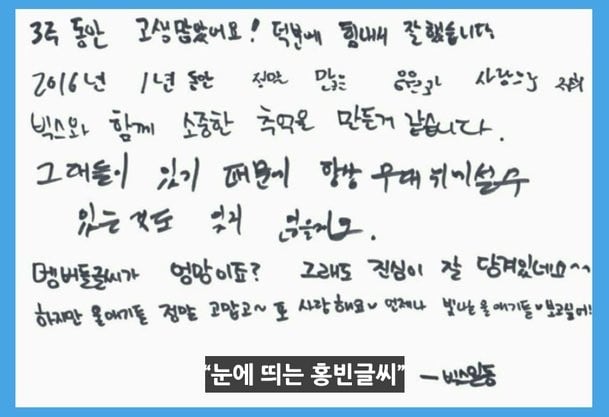 3주 동안 고생많았어요! 덕분에 힘내서 잘했습니다
2016년 1년동안 정말 많은 응원과 사랑으로 저희
빅스와 함께 소중한 추억을 만든거 같습니다.
그대들이 있기 때문에 항상 무대 위에 설 수
있는 것도 잊지 않을게요.
멤버들글씨가 엉망이죠? 그래도 진심이 잘 담겨있네요~~
하지만 울애기들 정말 고맙고~ 또 사랑해요♥ 언제나 빛나는 울애기들♥ 보고싶어!
"눈에 띄는 홍빈글씨"
-빅스일동